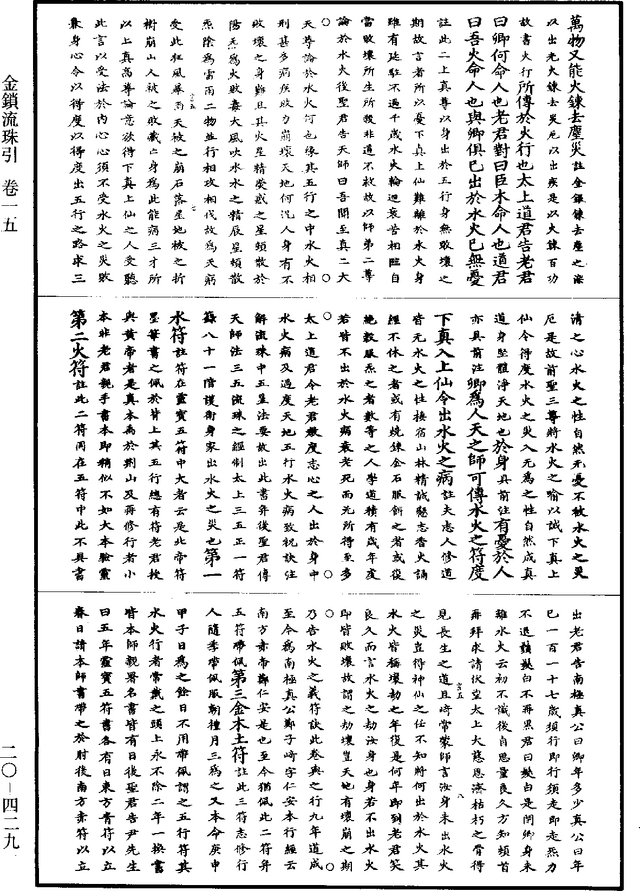 萬物又能火鍊去塵災註金銀鍊去塵之
以出光火鍊去災尾以出疾是以火鍊百功
故書火行所傳於火行也太上道君告老君
曰卿何命人也老君對曰臣木命人也道君
曰吾火命人也與卿俱已出於水火已無憂
註此二上真尊以身出於五行身無敗壞之
期故言者所以憂下真上仙難離於水火身
雖有延駐不過千歲水火輪迴衰咎相臨自
當敗壞所生所殺非道不救故以師第二尊
論於水火後聖君告天師曰吾聞至真二大
天尊論於水火何也緣其五行之中水火相
刑甚多病疾敗力崩壞天地何況人身有不
敗壞之身難且其火星精熒惑之星頻散於
陽炁為火敗毒大風吹水水之精辰星頻散
炁陰為雷雨二物並行相攻相伐故為天窮
受此狂風暴雨天被之崩石落星地被之折
樹崩山人被之敗藏亡身為此能病三才所
以上真高尊論意欲得下真上仙之人受聽
此言以受法於內心心須不受水火之災敗
衰身心令以得度以得度出五行之路求三
清之心水火之性自然無憂不被水火之災
厄是故前聖三尊將水火之喻以誡下真上
仙令得度水火之災入元為之性自然成真
道身坐體淨天地也於身具前注有憂於人
亦具前注卿為人天之師可傳水火之符度
下真入上仙令出水火之病註夫志人修道
皆元水火之性接宿山林精誠懇志香火誦
經不休之者或有燒鍊金石服餌之者或從
施教服炁之者數等之人學道積有歲年度
若皆不出於水火病衰老死而元所得至多
太上道君令老君教度志心之人出於身中
水火病及過度天地五行水火病致祝訣往
解流珠中五星法要故出此書并後聖君傳
天師法三五流珠之經制太上三五正一符
籙八十一階護衛身家出水火之災也第一
水符註符在靈寶五符中大者云是北帝符
墨筆書之佩於背上其五行總有符老君授
與黃帝者是真本禹於荊山及再修行者小
本非老君親手書本即稍似不如大本驗靈
第二火符註此二符同在五符中此不具書
出老君告南極真公曰卿年多少真公曰年
已一百一十七歲須行即行須走即走炁力
不退鬚髮白不再黑君曰髮白是閉卿身未
離水火云初不懺後自思量良久方知頓首
再拜求請伏望太上大慈恩濟枯朽之骨得
見長生之道且崎常蒙師言汝身未出水火
之災豈得神仙之任不知將何出於水火其
水火皆稱壞劫之年復是何年即到老君笑
良久而言水火之劫汝身也身若不出水火
即皆敗壞故謂之劫壞豈天地有壞崩之期
乃告水火之義符訣此卷與之行九年道成
至今為南極真公鄭子崎字仁安本行經云
南方赤帝鄭仁安是也至今猶佩此二符并
五符帶佩第三金木土符註此三符志修行
人隨季帶佩服朝種月三為之又本命庚申
甲子日為之餘日不用帶佩謂之五行符其
水火行者常戴之頭上永不除二年一換書
皆本師親署名書皆有日後聖君告尹先生
曰五年靈寶五符書各有日東方青符以立
春日請本師書帶之於肘後南方赤符以立
金鎖流珠引 卷一五
二〇-四二九